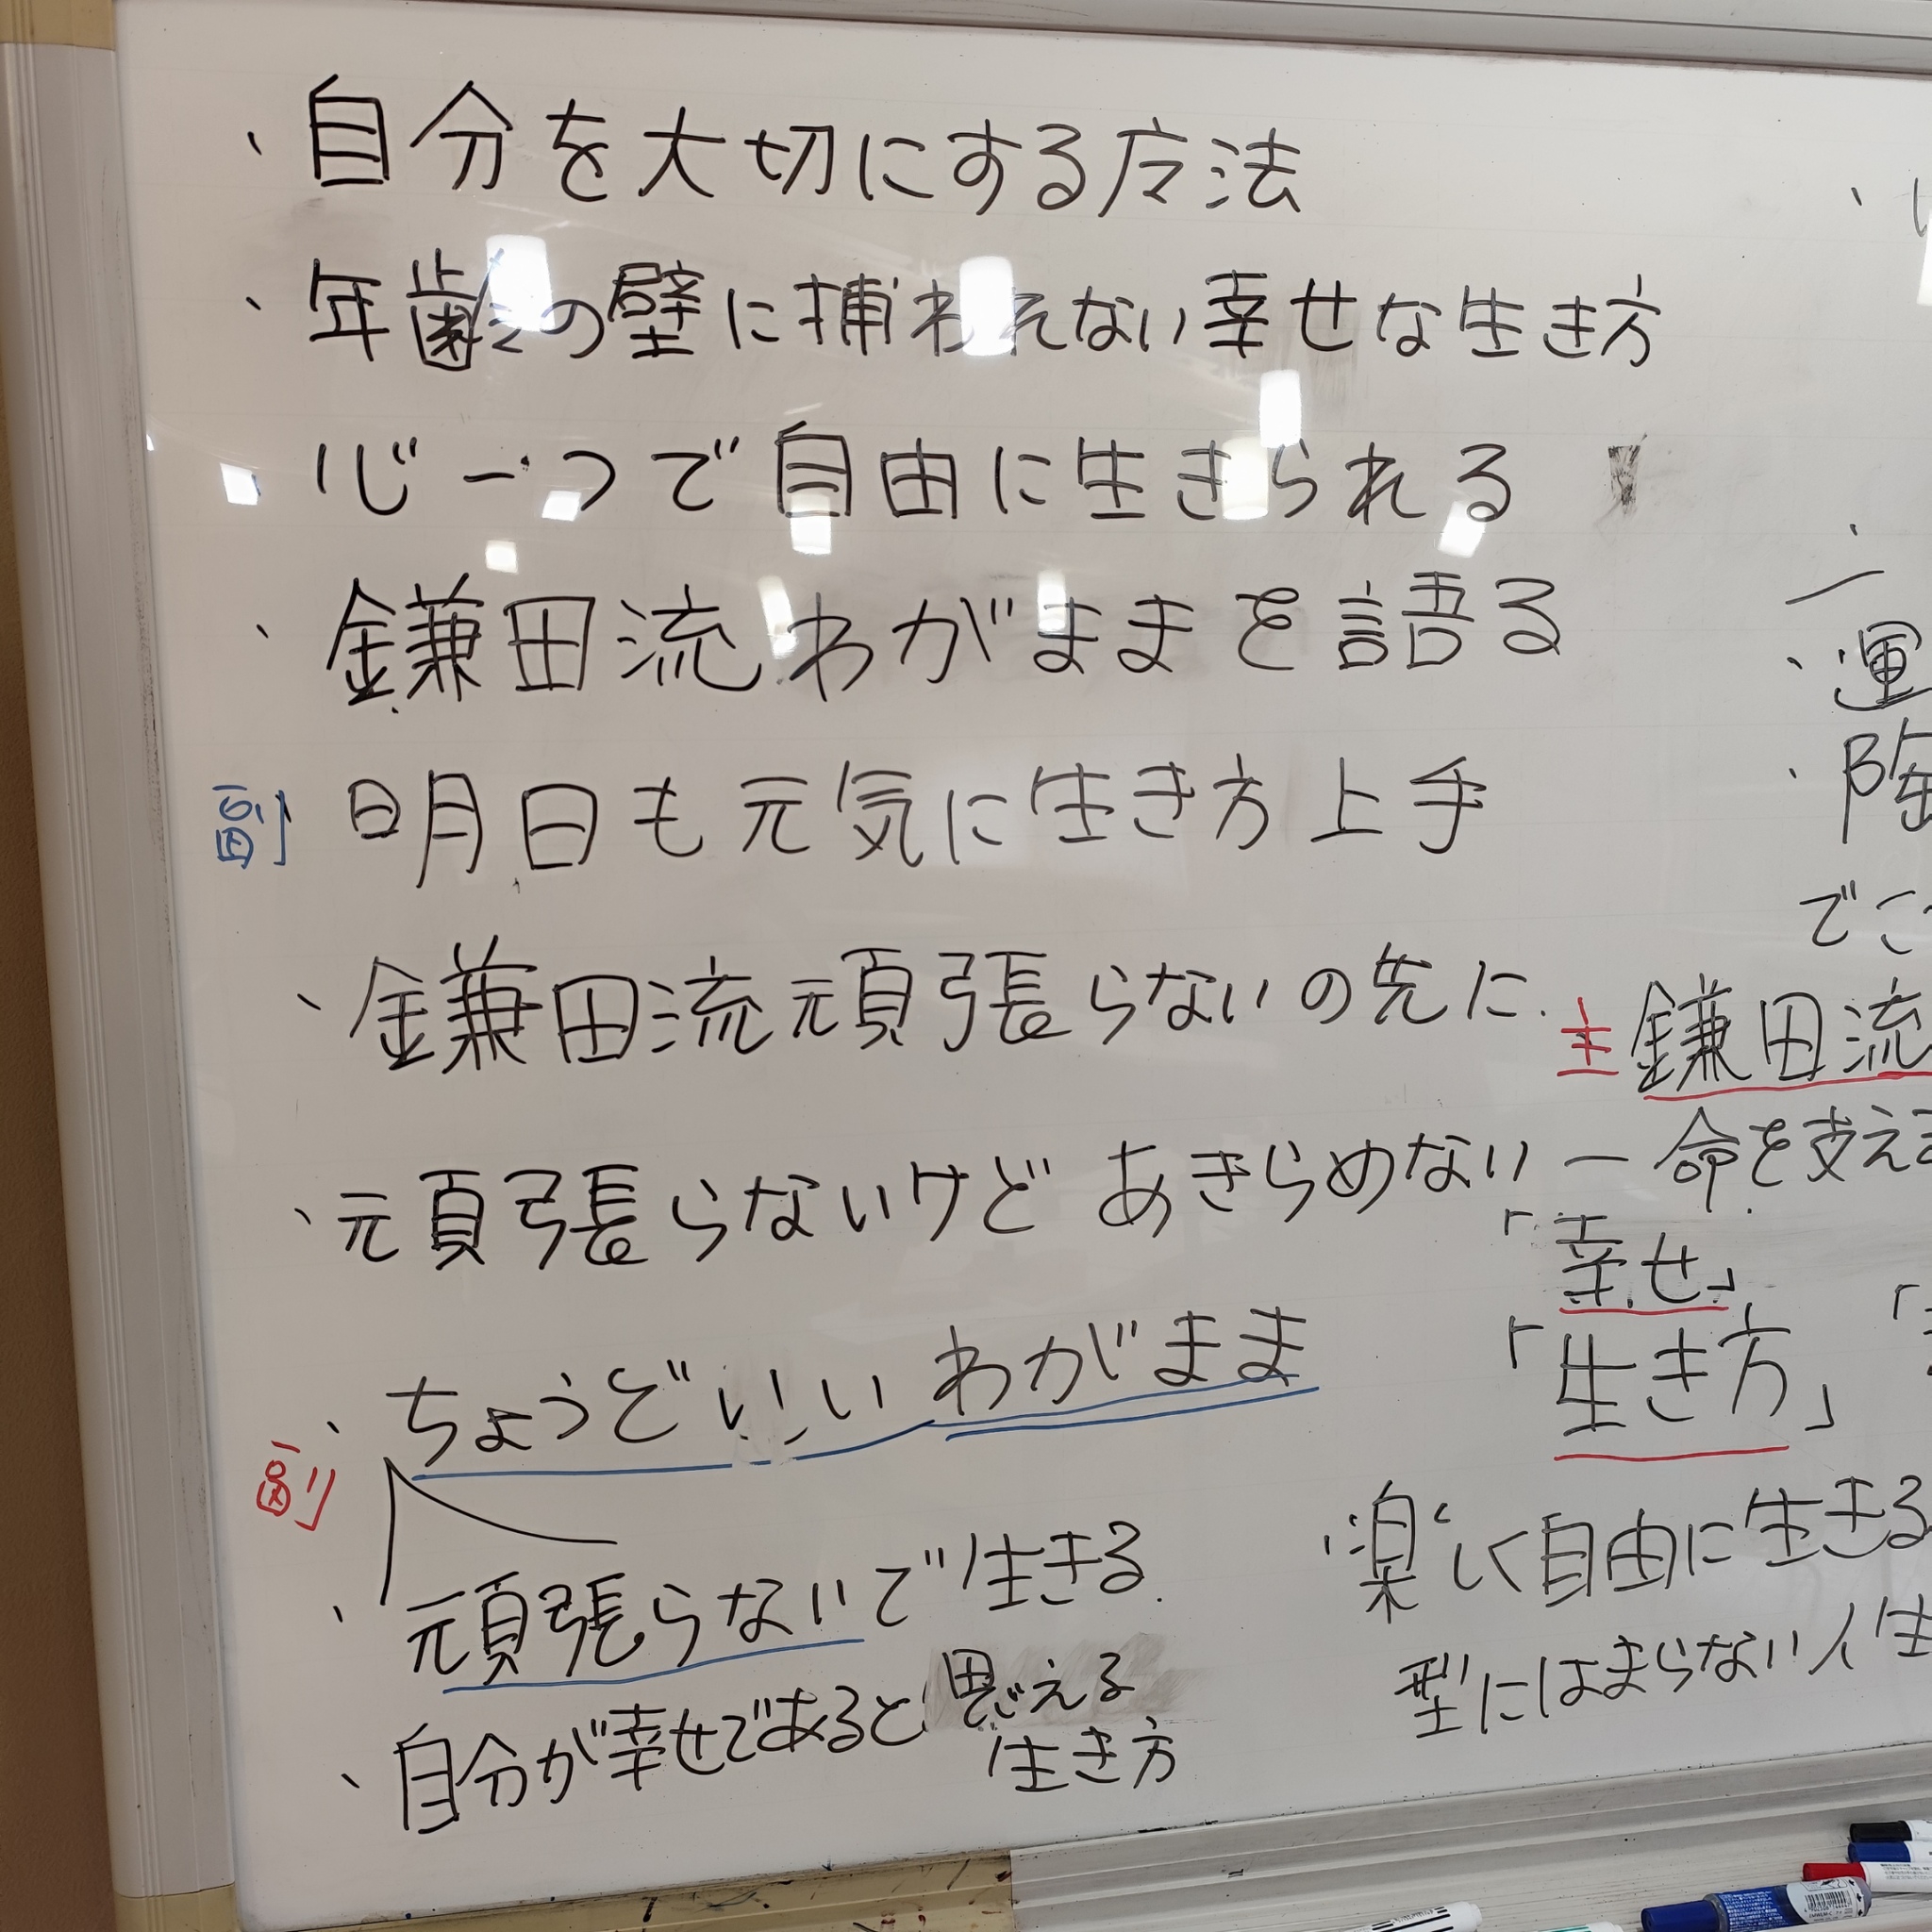 ・自分を大切にする方法
・年齢の壁に捕われない幸せな生き方
・心一つで自由に生きられる
・鎌田流わがままを語る
副 明日も元気に生き方上手
・鎌田流頑張らないの先に
・頑張らないけどあきらめない
・ちょうどいいわがまま
副
・頑張らないで生きる
・自分が幸せであると思える
生き方
・運
・陶
でこ
主 鎌田流
一命を支える
「幸せ」
「生き方」
・楽しく自由に生きる
型にはまらない人生